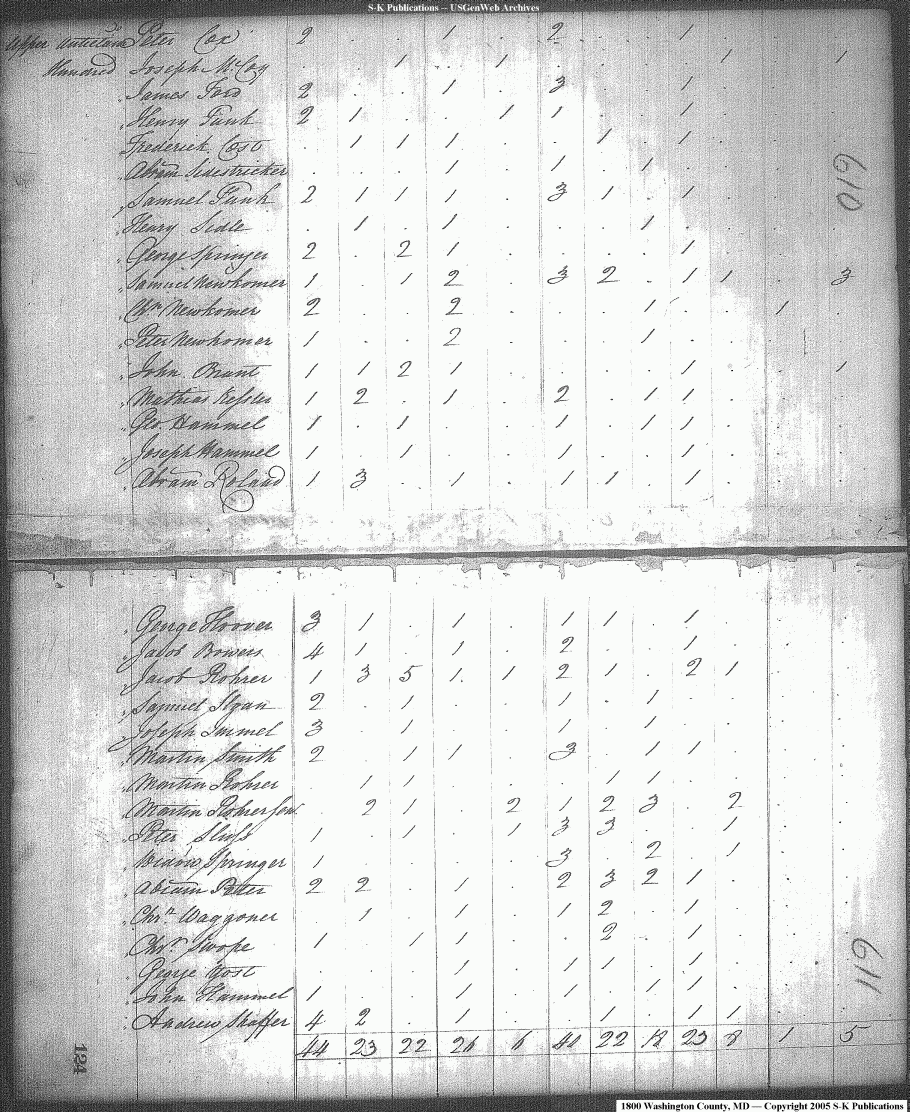 S-K Publications -- USGenWeb Archives
Upper Antietam Peter Cox 2 . . 1 . 2 . . 1 . . .
Hundred Joseph McCoy . . 1 . 1 . . . . 1 . 1
James Ford 2 . . 1 . 3 . . 1 . . .
Henry Funk 2 1 . . 1 1 . . 1 . . .
Frederick . 1 1 1 . . 1 . 1 . . .
Abram Sidestricker . . . 1 . 1 . 1 . . . .
Samuel Funk 2 1 1 1 . 3 1 . 1 . . .
Henry Sidle . 1 . 1 . . . 1 . . . .
George Springer 2 . 2 1 . . . . 1 . . .
Samuel Newkomer 1 . 1 2 . 3 2 . 1 1 . 3
Chn Newkomer 2 . . 2 . . . 1 . . 1 .
Peter Newkomer 1 . . 2 . . . 1 . . . .
John Brant 1 1 2 1 . . . . 1 . . 1
Mathias Kessler 1 2 . 1 . 2 . 1 1 . . .
Geo Hammel 1 . 1 . . 1 . 1 1 . . .
Joseph Hammel 1 . 1 . . 1 . . 1 . . .
Abram Roland 1 3 . 1 . 1 1 . 1 . . .
610
George Hoover 3 1 . 1 . 1 1 . 1 . . .
Jacob Bowers 4 1 . 1 . 2 . . 1 . . .
Jacob Rohrer 1 3 5 1 1 2 1 . 2 1 . .
Samuel 2 . 1 . . 1 . 1 . . . .
Joseph Immel 3 . 1 . . 1 . 1 . . . .
Martin Smith 2 . 1 1 . 3 . 1 1 . . .
Martin Rohrer . 1 1 . . . 1 1 . . . .
Martin Rohrer Sen . 2 1 . 2 1 2 3 . 2 . .
Peter 1 . 1 . 1 3 3 . . 1 . .
Widow Springer 1 . . . . 3 . 2 . 1 . .
Abram 2 2 . 1 . 2 3 2 1 . . .
Chrn Waggoner . 1 . 1 . 1 2 . 1 . . .
Chrn Swope 1 . 1 1 . . 2 . 1 . . .
George Yost . . . 1 . 1 1 . 1 . . .
John Hammel 1 . . 1 . 1 . 1 1 . . .
Andrew Shaffer 4 2 . 1 . . 1 . 1 1 . .
44 23 22 26 6 40 22 18 23 8 1 5
611
124
1800 Washington County, MD — Copyright 2005 S-K Publications